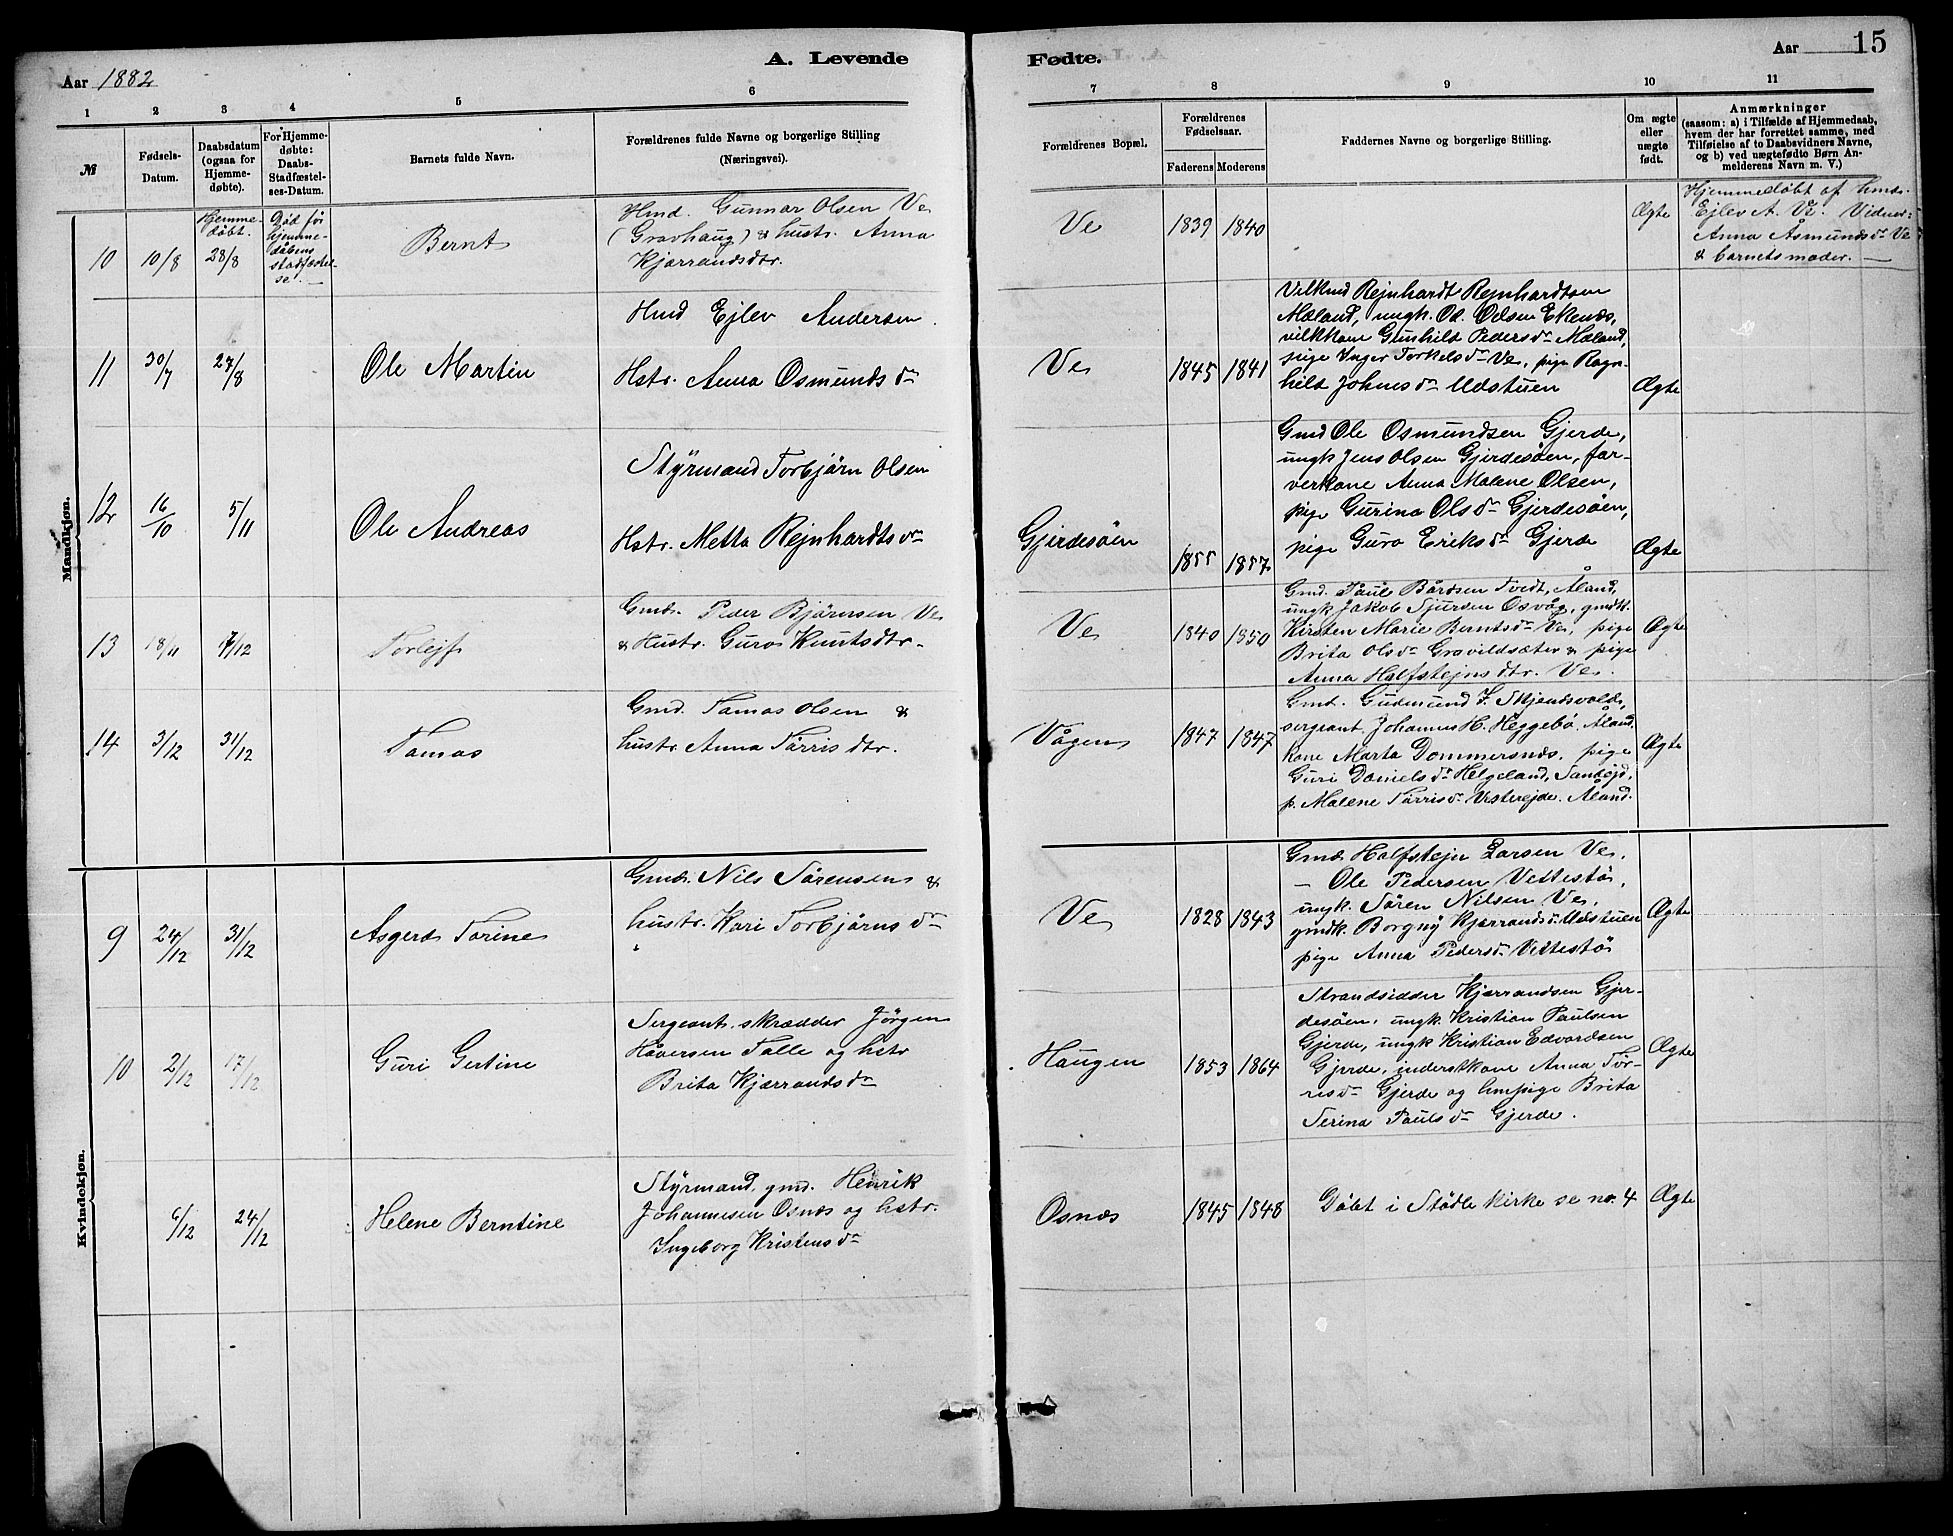 A. Levende
Fødte.
Aar 15
Aar 1882
1 2 3 4 5 6
7 8 9 10 11
№
Fødsels-
Datum.
Daabsdatum
(ogsaa for
Hjemme-
døbte).
For Hjemme-
døbte:
Daabs-
Stadfæstel-
ses-Datum.
Barnets fulde Navn.
Forældrenes fulde Navne og borgerlige Stilling
(Næringsvei).
Forældrenes Bopæl.
Forældrenes
Fødselsaar.
Faderens Moderens
Faddernes Navne og borgerlige Stilling.
Om ægte
eller
uægte
født.
Anmærkninger
(saasom: a) i Tilfælde af Hjemmedaab,
hvem der har forrettet samme, med
Tilføielse af to Daabsvidners Navne,
og b) ved uægtefødte Børn An-
melderens Navn m. V.)
Mandkjøn.
10
10/8
Hjemme-
döbt.
28/8
Död för
hjemme-
dåbens
stadfæstel-
se.
Bernt
Hmd. Gunnar Olsen Ve
(Gravhaug) & hustr. Anna
Kjærrandsdtr.
Ve
1839 1840
Ægte
Hjemmedöbt af hmd.
Ejlev A. Ve. Vidner:
Anna Åsmundsdr Ve
& barnets moder.
11
30/7
27/8
Ole Martin
Hmd Ejlev Andersen
Hstr. Anna Osmundsdr
Ve
1845 1841
Vilkmd Rejnhardt Rejnhardtsen
Mæland, ungk. Od. Odsen Ekenæs,
vilkkone Gunhild Pedersdr Mæland,
pige Inger Torkelsdr Ve, pige Ragn-
hild Johnsdr Udstuen
Ægte
12
16/10
5/11
Ole Andreas
Styrmand Torbjörn Olsen
Hstr. Metta Rejnhardtsdr
Gjerdesöen
1855 1857
Gmd Ole Osmundsen Gjerde,
ungk Jens Olsen Gjerdesöen, far-
verkone Anna Malene Olsen,
pige Gurina Olsdr Gjerdesöen,
pige Guro Eriksdr Gjerde
Ægte
13
18/11
/12
Torlejf
Gmd. Peder Björnsen Ve
& Hustr. Guro Knutsdtr.
Ve
1840 1850
Gmd. Paul Bårdsen Tvedt, Åland,
ungk Jakob Sjursen Osvåg, gmdk.
Kirsten Marie Berntsdr Ve, pige
Brita Olsdr Gravildsæter & pige
Anna Halfstejnsdtr. Ve.
Ægte
14
3/12
31/12
Tamas
Gmd. Tamas Olsen &
hustr Anna Törrisdtr.
Vågen
1847 1847
Gmd. Gudmund Skjendsvold,
sergeant Johannes H. Heggebö. Åland
kone Marta Dommersnæs. pige
Guri Danielsdr Helgeland,
p. Malene Törrisdr Vestereide. Åland.
Ægte
Kvindekjøn.
9
24/12
31/12
Asgerd Torine
Gmd. Nils Sörensen &
hustr. Kari Torbjörnsdr
Ve
1828 1843
Gmd. Halfstejn Larsen Ve,
— Ole Pedersen Vettestö,
ungk. Sören Nilsen Ve,
gmdk. Borgny Kjærrandsdr Udstuen
pige Anna Pedersdr Vettestö
Ægte
10
2/12
17/12
Guri Gertine
Sergeant, skrædder Jörgen
Håversen Talle og hstr
Brita Kjærrandsdr
Haugen
1853 1864
Strandsidder Kjærrandsen Gjer-
desöen, ungk. Kristian Paulsen
Gjerde, ungk Kristian Edvardsen
Gjerde, inderstkone Anna Tör-
risdr Gjerde og hmpige Brita
Serina Paulsdr Gjerde.
Ægte
6/12
24/12
Helene Berntine
Styrmand, gmd. Henrik
Johannesen Osnæs og hstr.
Ingeborg Kristensdr
Osnæs
1845 1848
Döbt i Stödle kirke se no. 4
Ægte